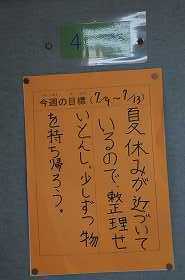 4
今週の目標 (7/9〜7/13)
夏休みが近づいて
いるので、整理せ
いとんし、少しずつ物
を持ち帰ろう。